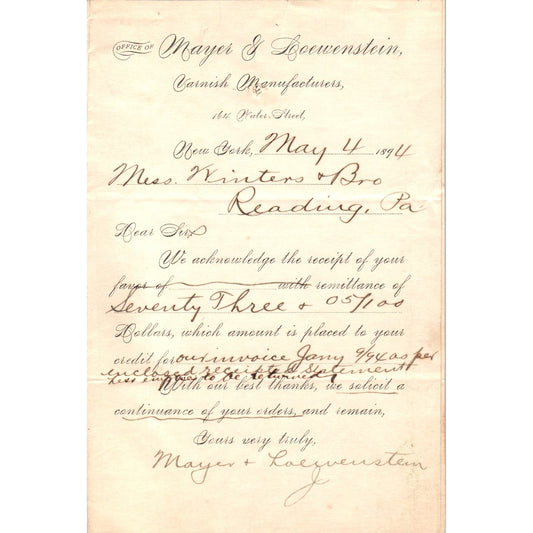 OFFICE OF Mayer & Loewenstein,
Varnish Manufacturers,
164 Water Street,
New York, May 4 1894
Mess. Winters & Bro
Reading, Pa
Dear Sirs
We acknowledge the receipt of your
favor of with remittance of
Seventy Three & 05/100
Dollars, which amount is placed to your
credit for our invoice Jany 9/94 as per
enclosed receipted Statement
less empties to be returned
With our best thanks, we solicit a
continuance of your orders, and remain,
Yours very truly,
Mayer & Loewenstein